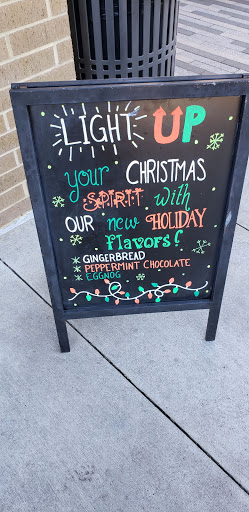 LIGHT UP
your CHRISTMAS
SPIRIT with
OUR new HOLIDAY
flavors!
* GINGERBREAD
* PEPPERMINT CHOCOLATE
* EGGNOG